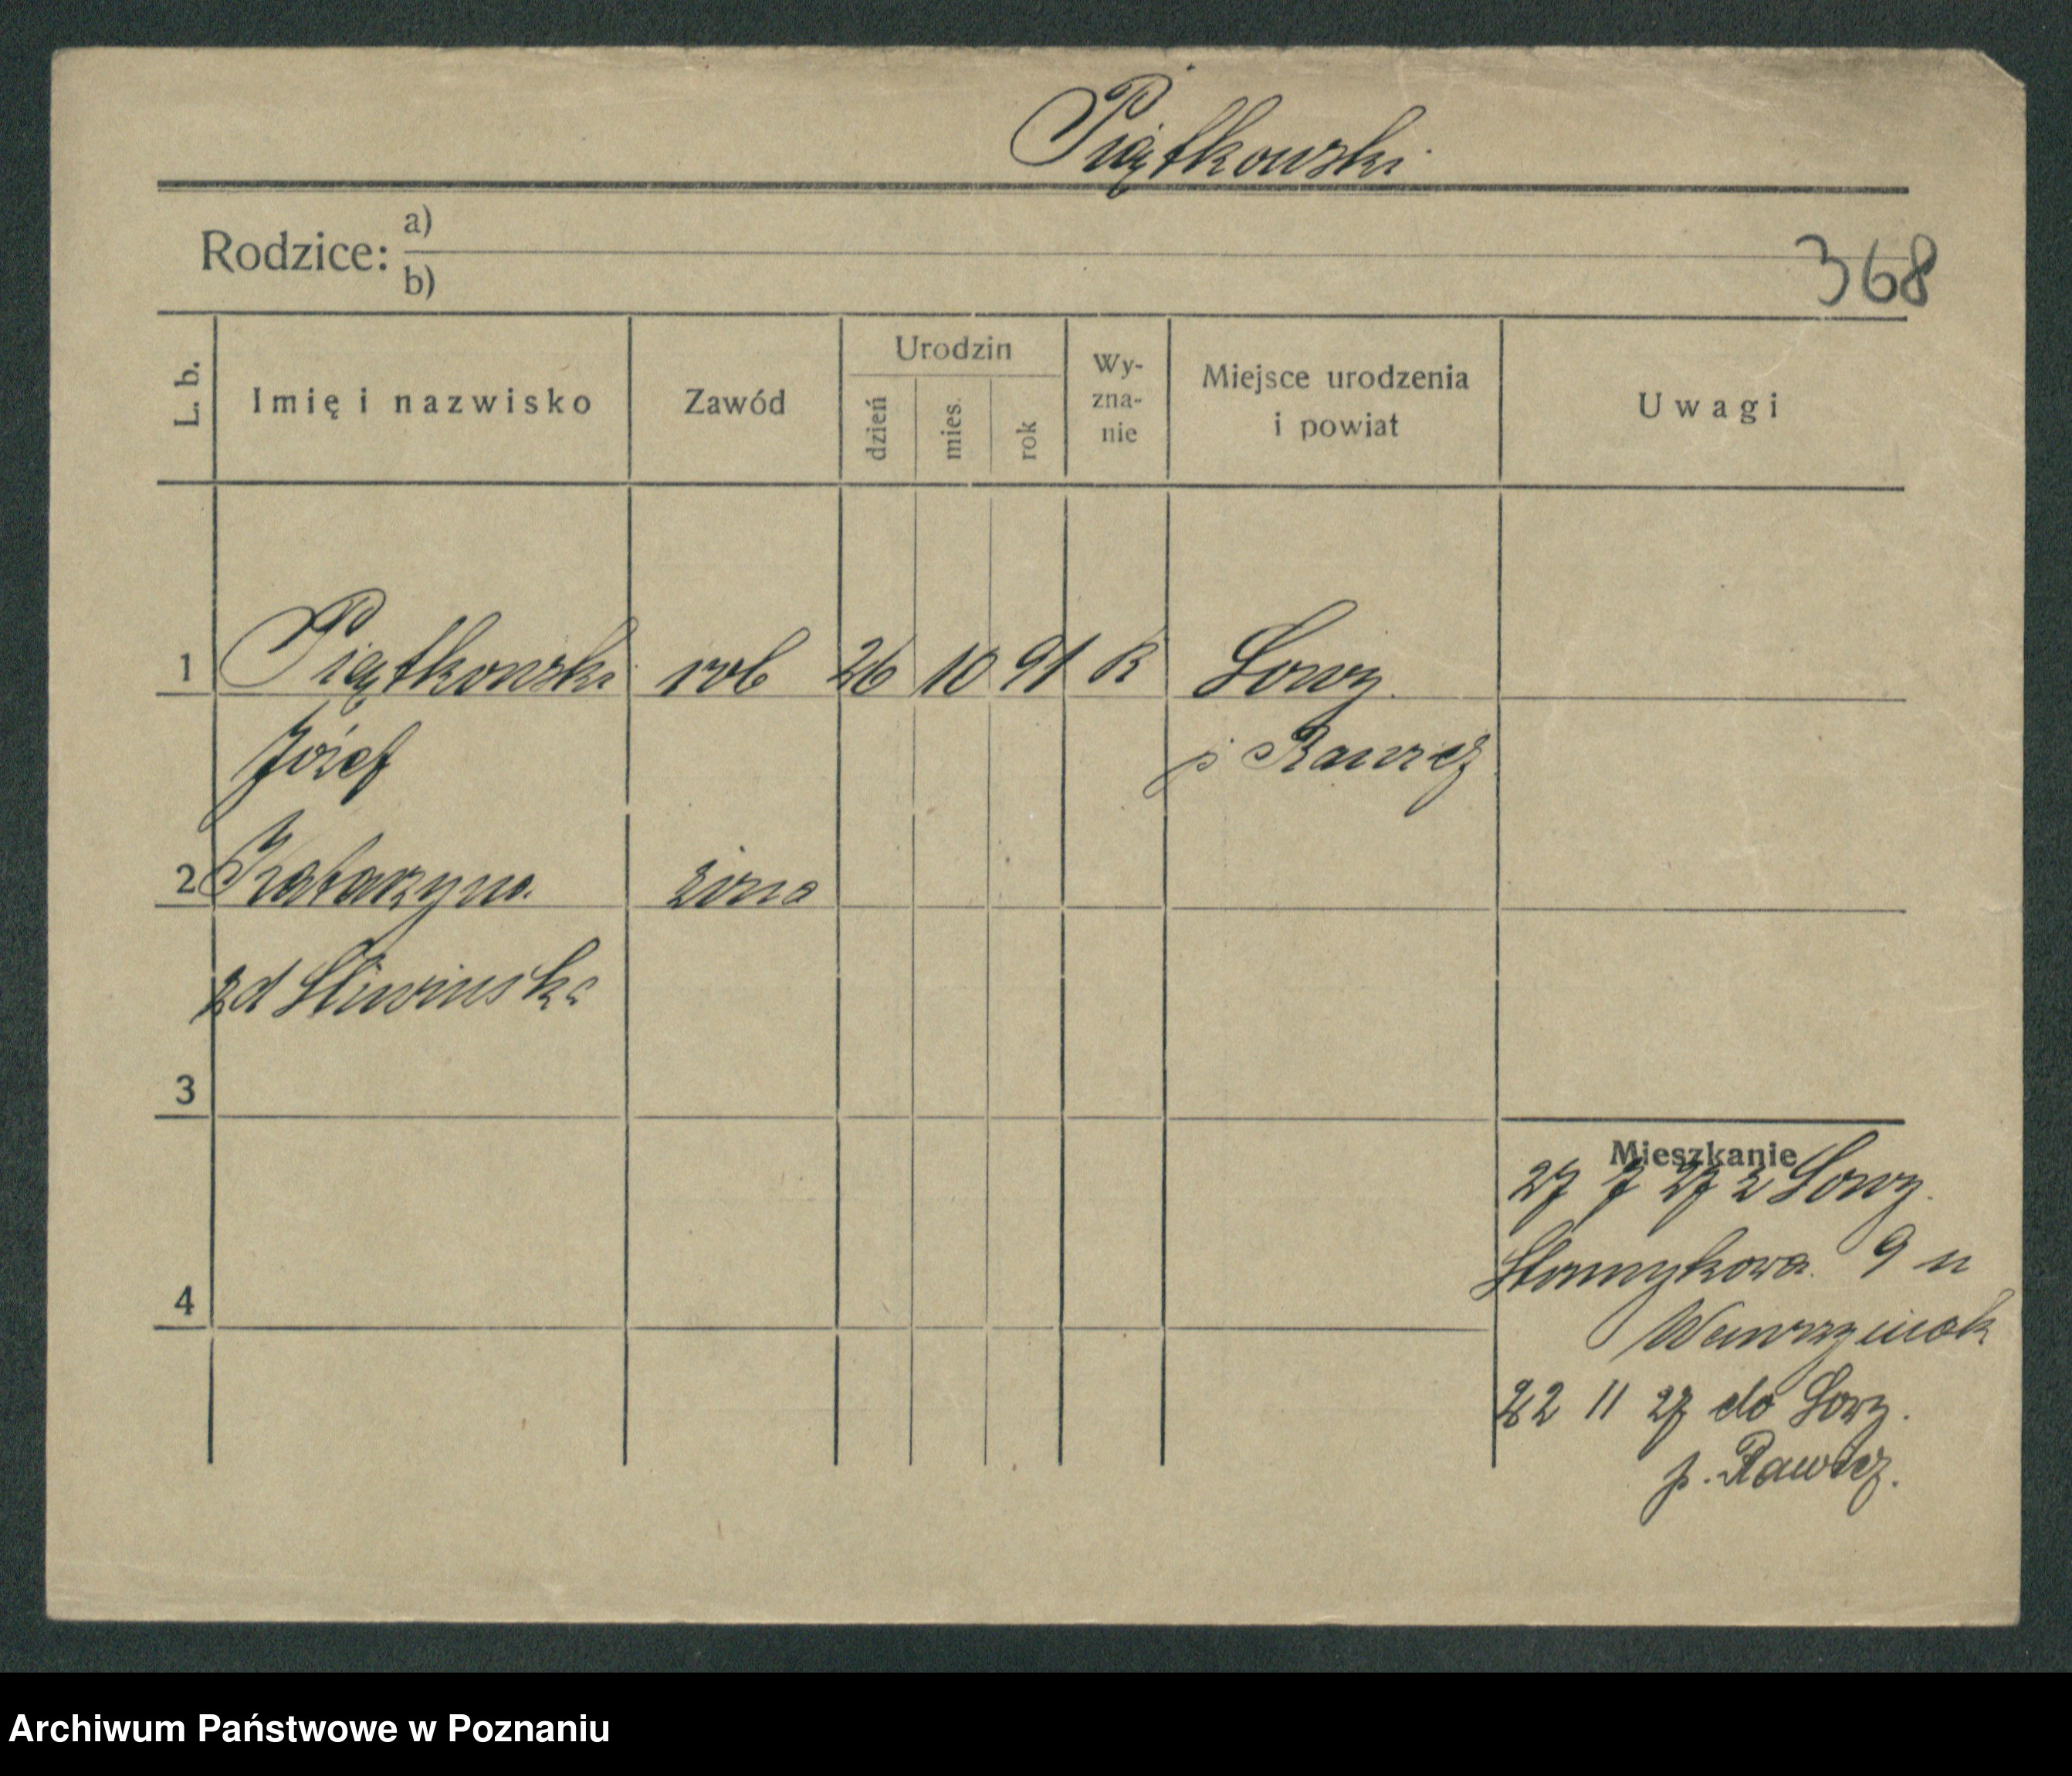 Piątkowski
Rodzice: a)
b)
368
L. b. Imię i nazwisko Zawód Urodzin dzień mies. rok Wy-zna-nie Miejsce urodzenia i powiat Uwagi
1 Piątkowski rob 26 10 91 K Sowy
Józef p Rawicz
2 Katarzyna żona
zd Śliwińska
3
Mieszkanie
27 7 27 z Sowy.
9 u
4
Wawrzyniak
22 11 27 do Sowy.
p. Rawicz.
Archiwum Państwowe w Poznaniu